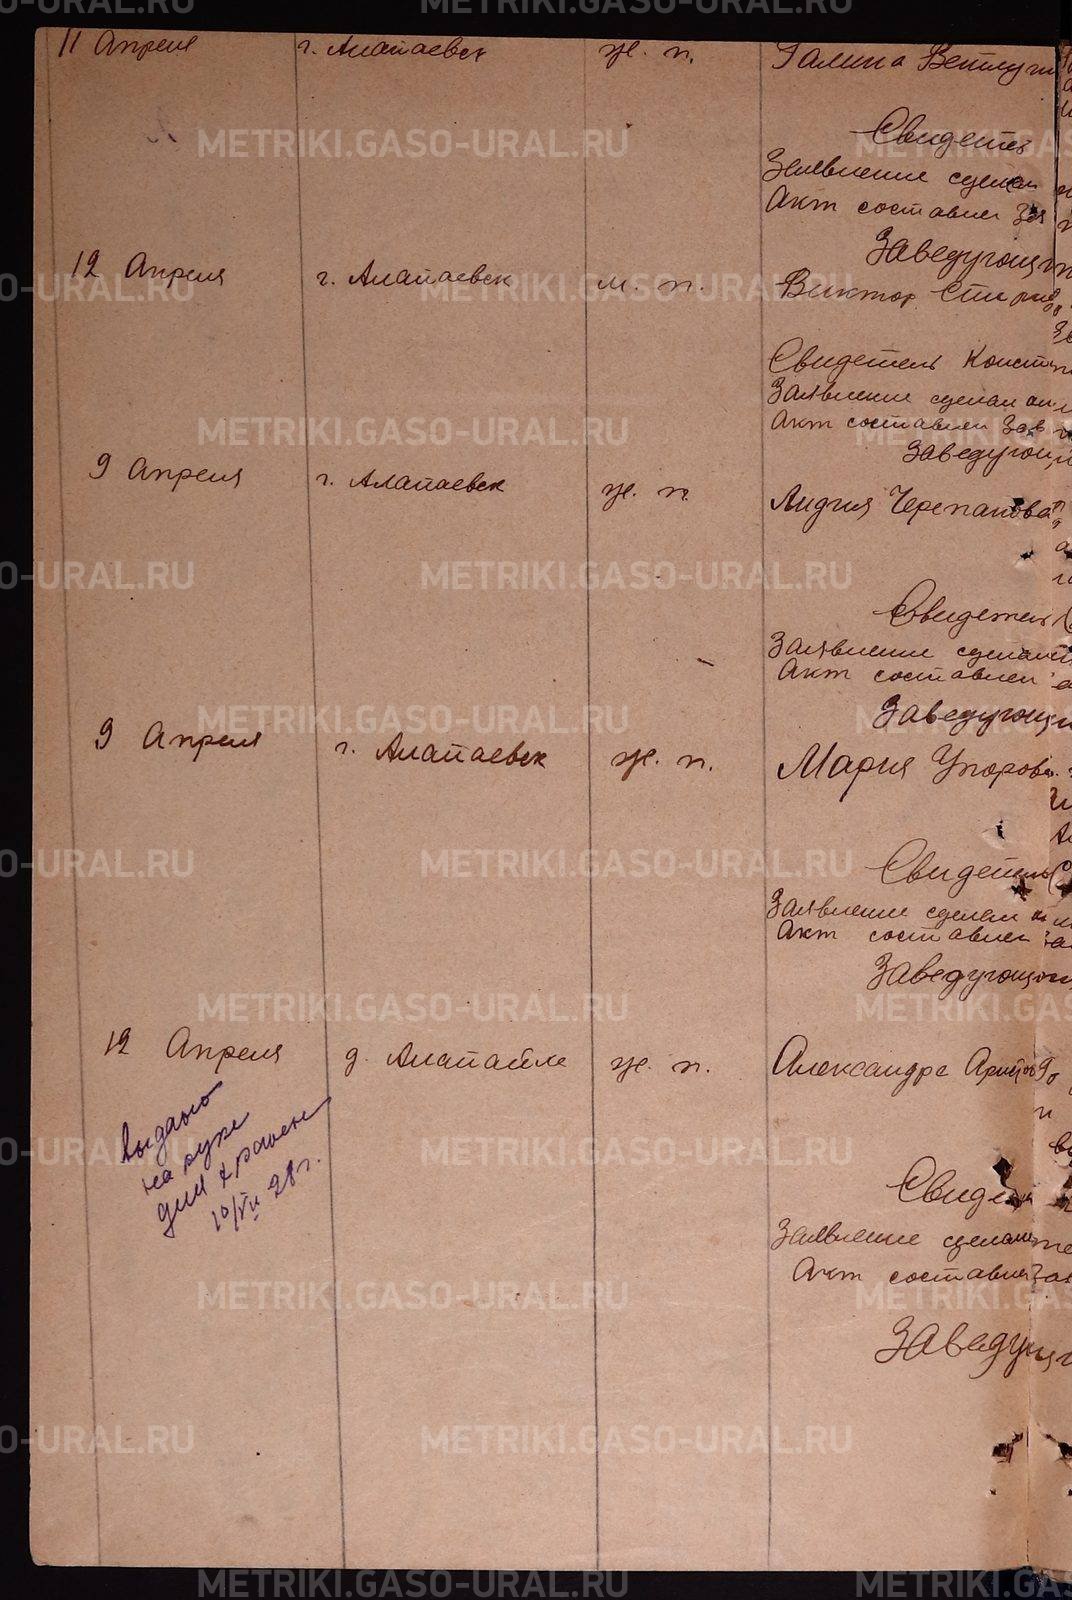 11 Апреля г. Алапаевск ж. п. Галина Ветлуги
Свидетель
Заявление сделан
Акт составлен За
Заведующ
12 Апреля г. Алапаевск м. п. Виктор
Свидетель Конст
Заявление сделан
Акт составлен Зав
Заведующ
9 Апреля г. Алапаевск ж. п. Лидия Черепанова
Свидетель
Заявление сделан
Акт составлен
Заведующ
9 Апреля г. Алапаевск ж. п. Мария Упорова
Свидетель
Заявление сделан
Акт составлен
Заведующ
12 Апреля д. Алапаиха ж. п. Александра
выдано
на руки
для
10/VII 28 г.
Свидет
Заявление сделан
Акт составлен
Заведующ
METRIKI.GASO-URAL.RU